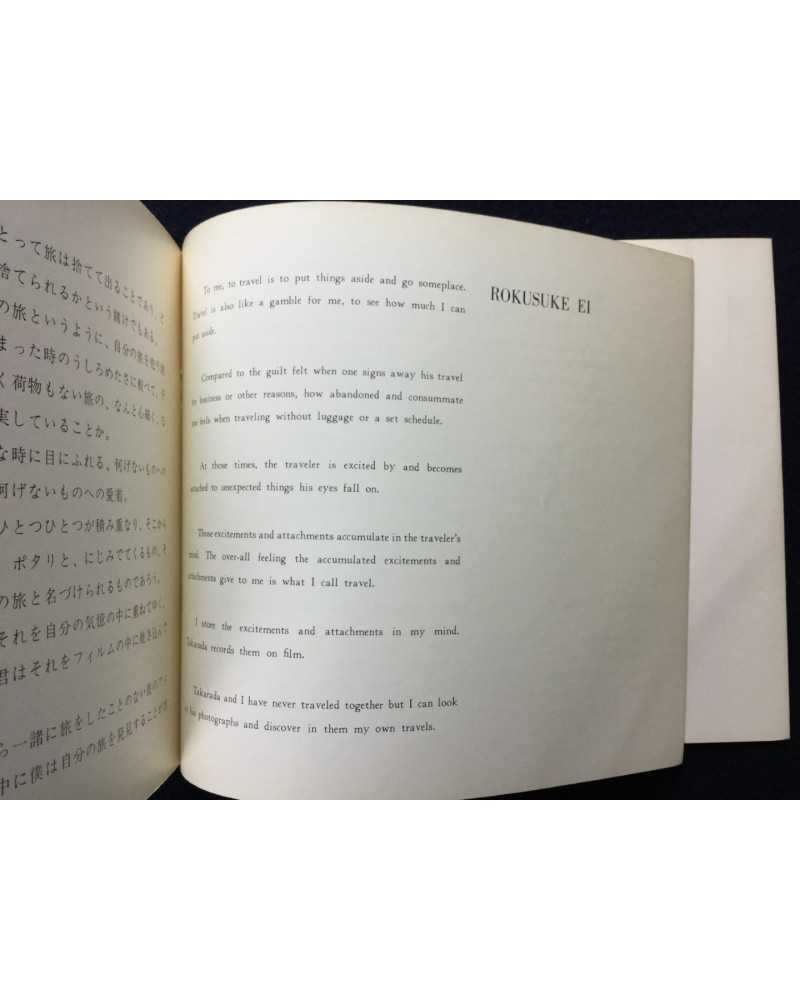 とって旅は捨てて出ることであり、ど
捨てられるかという賭けでもある。
の旅というように、自分の旅を他
まった時のうしろめたさに較べて、
く荷物もない旅の、なんと心細く、
実していることか。
な時に目にふれる、何げないものへの
何げないものへの愛着。
ひとつひとつが積み重なり、そこから
ポタリと、にじみでてくるもの、そ
の旅と名づけられるものであろう。
それを自分の気憶の中に重ねてゆく、
君はそれをフィルムの中に焼き込んで
ら一諸に旅をしたことのない君の
中に僕は自分の旅を発見することが
To me, to travel is to put things aside and go someplace.
Travel is also like a gamble for me, to see how much I can
put aside.
Compared to the guilt felt when one signs away his travel
for business or other reasons, how abandoned and consummate
one feels when traveling without luggage or a set schedule.
At those times, the traveler is excited by and becomes
attached to unexpected things his eyes fall on.
Those excitements and attachments accumulate in the traveler's
mind. The over-all feeling the accumulated excitements and
attachments give to me is what I call travel.
I store the excitements and attachments in my mind.
Takarada records them on film.
Takarada and I have never traveled together but I can look
at his photographs and discover in them my own travels.
ROKUSUKE EI